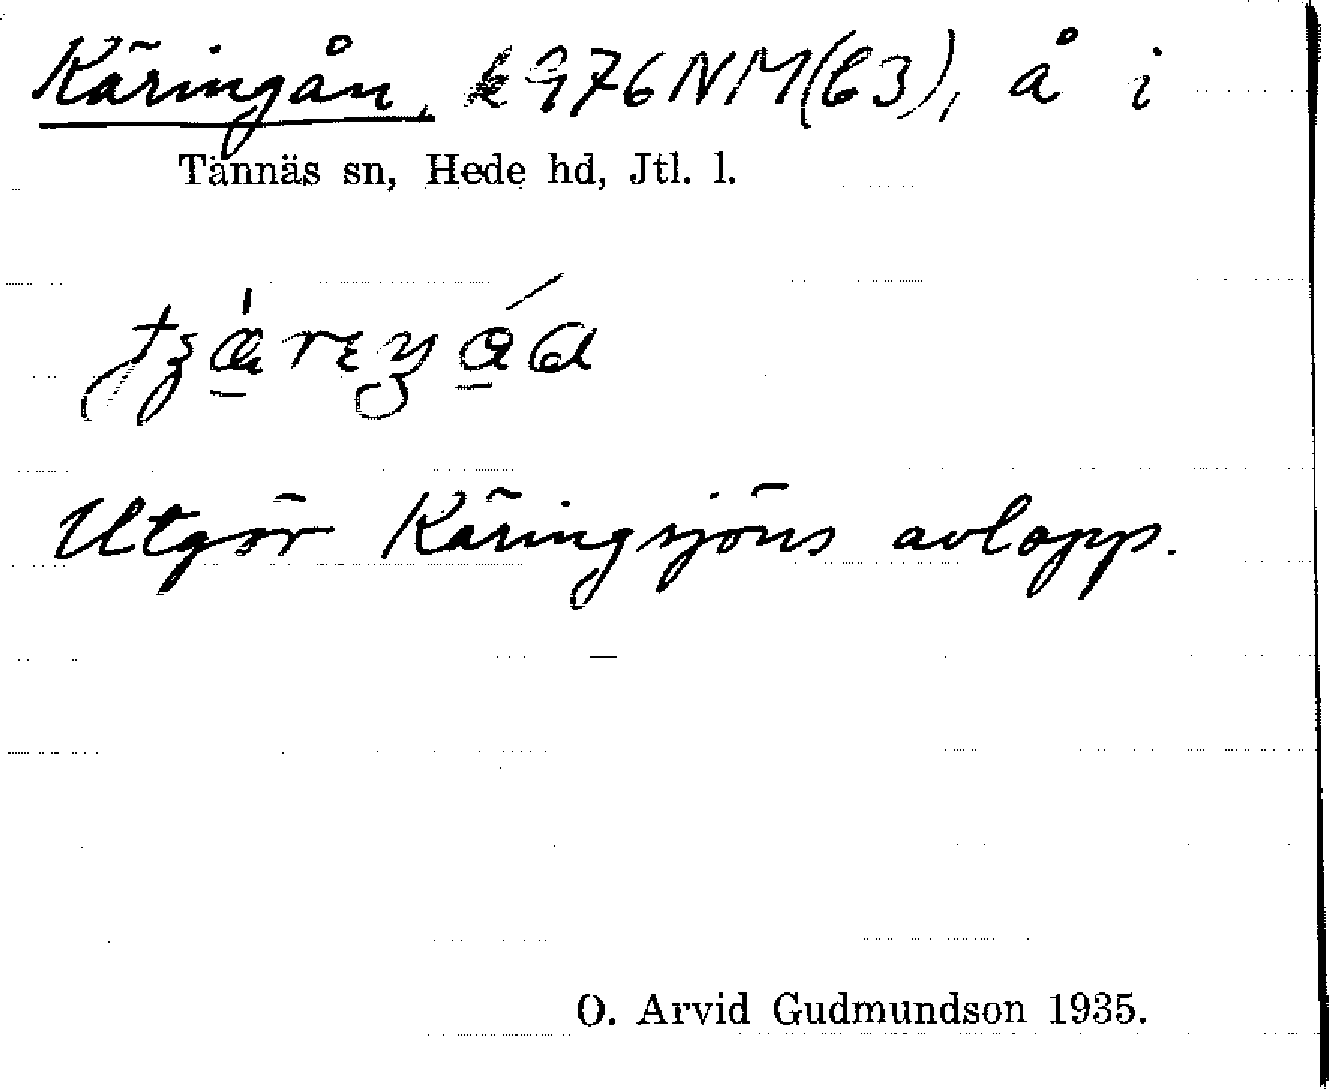 Käringån, k 976 NM (63), å i
Tännäs sn, Hede hd, Jtl. l.
Utgör Käringsjöns avlopp.
O. Arvid Gudmundson 1935.